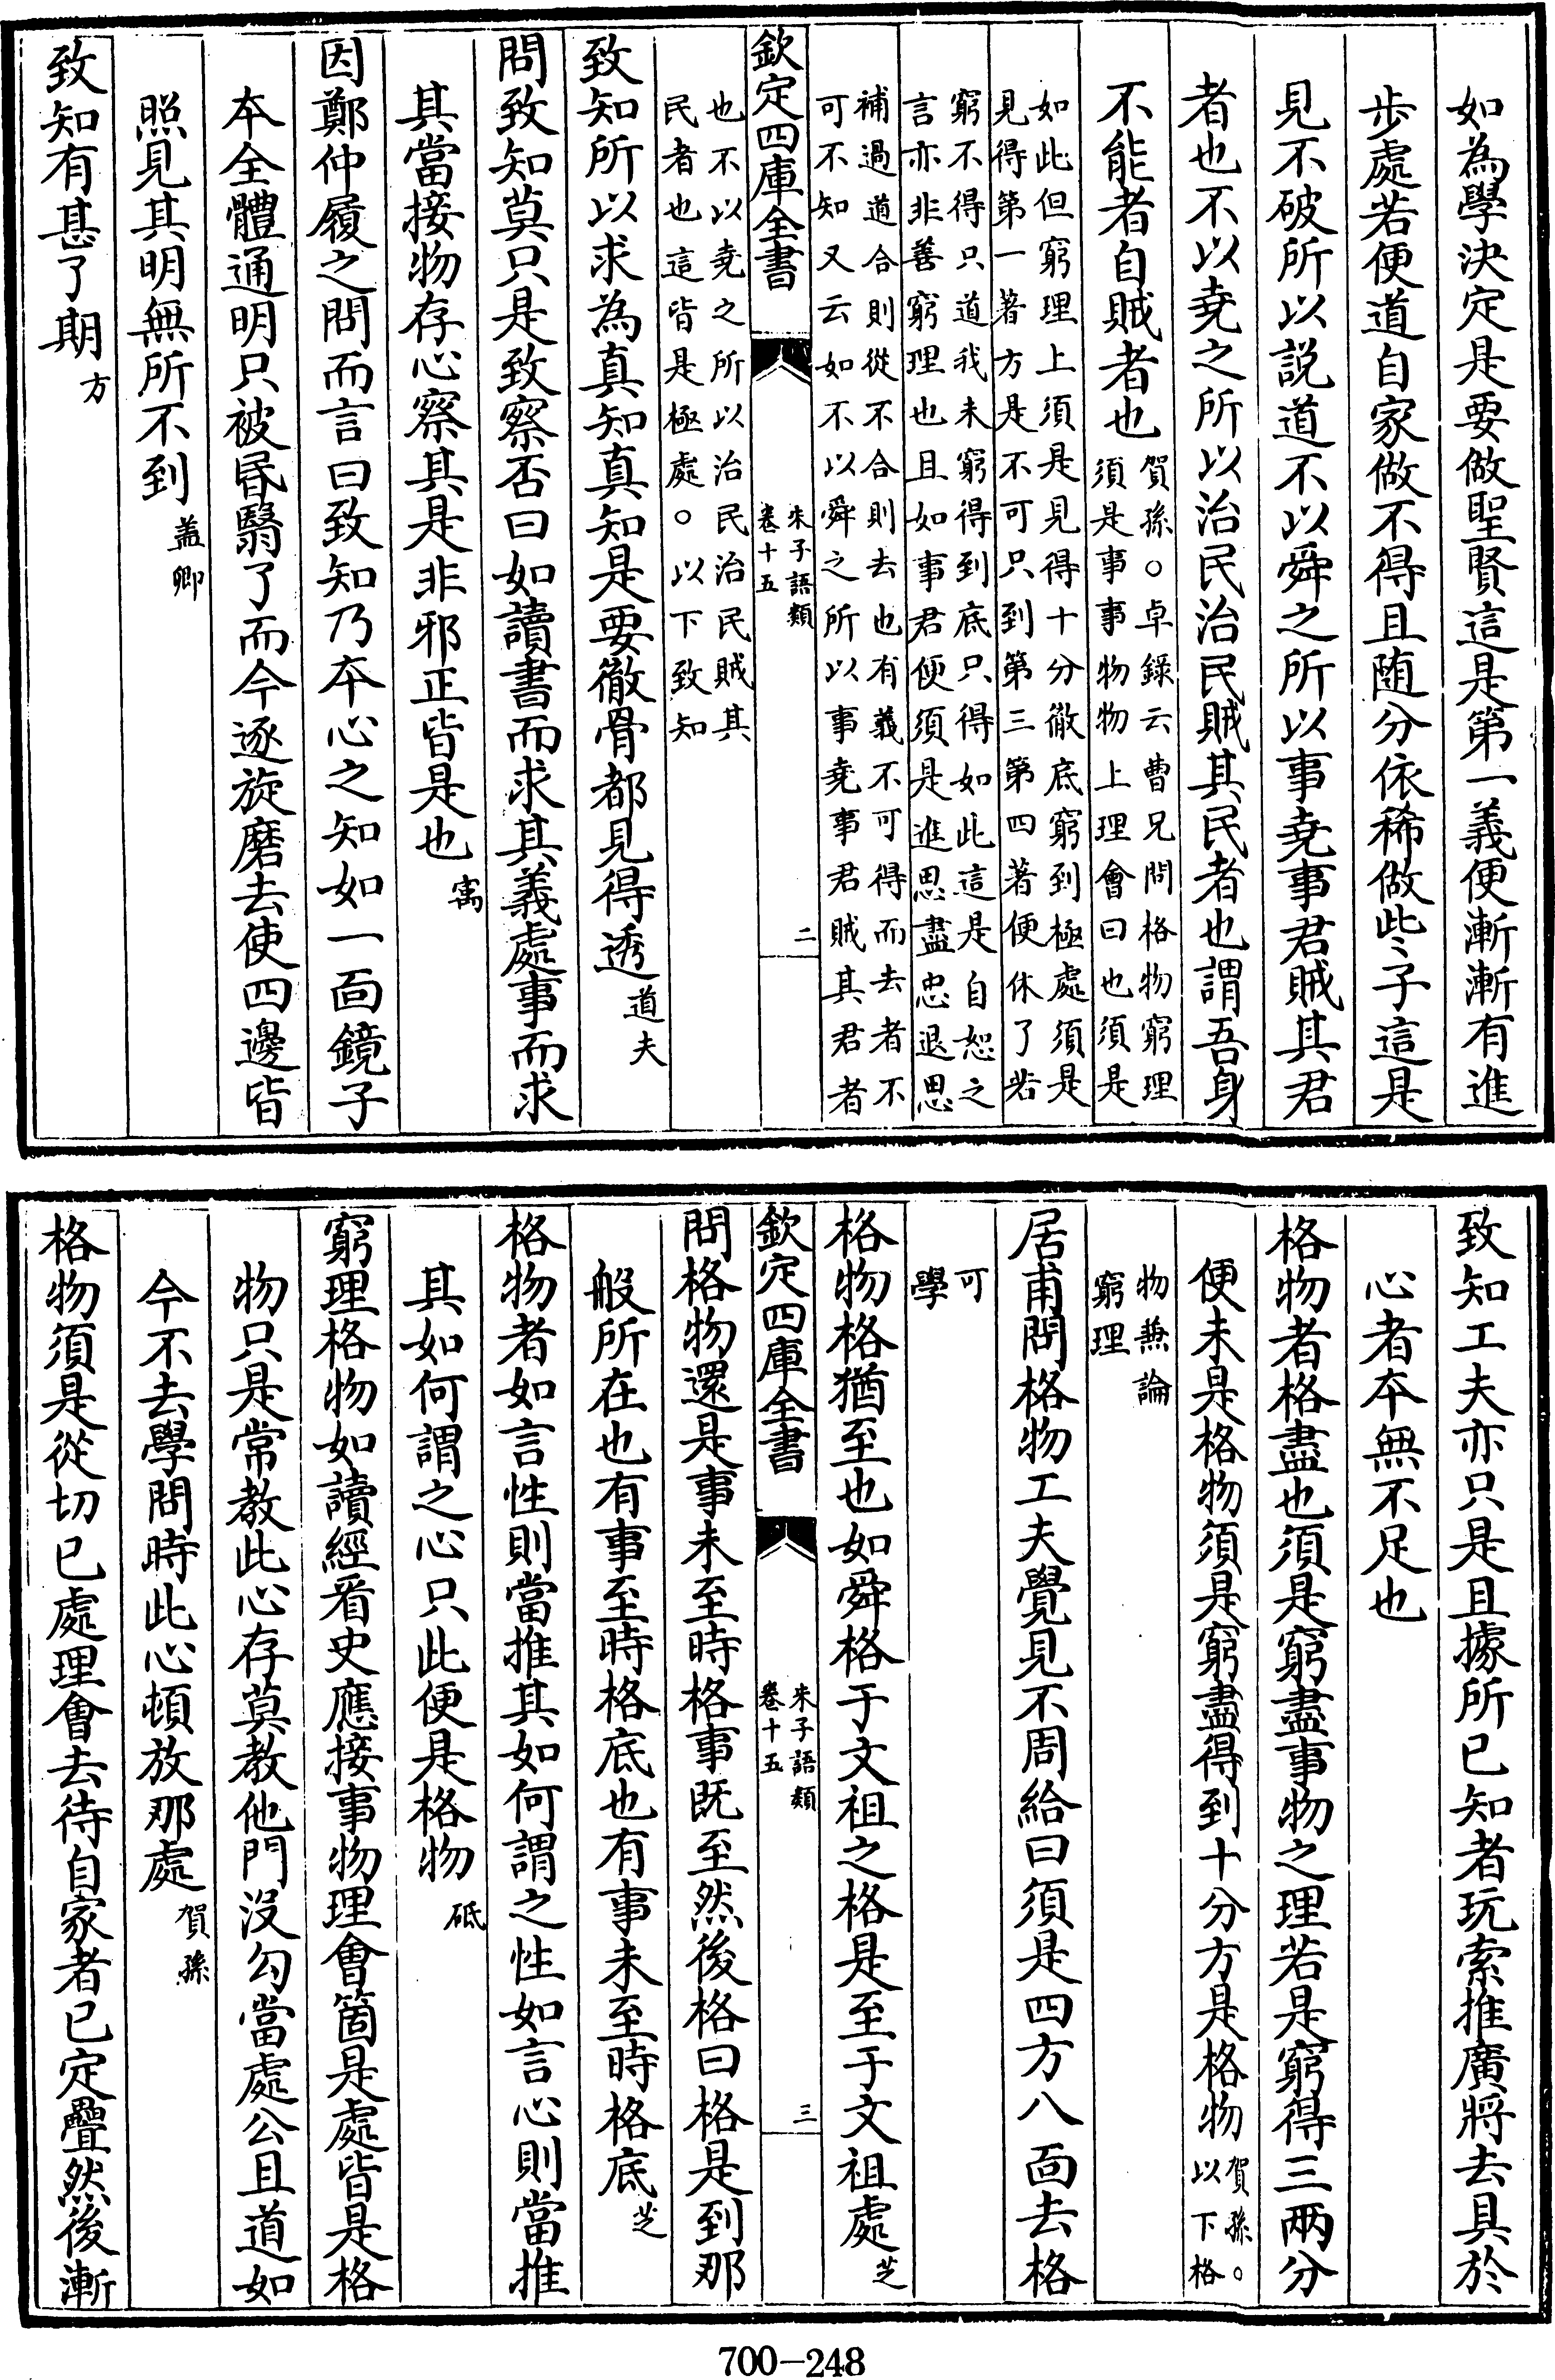 如為學決定是要做聖賢這是第一義便漸漸有進
步處若便道自家做不得且随分依稀做些子這是
見不破所以説道不以舜之所以事堯事君賊其君
者也不以堯之所以治民治民賊其民者也謂吾身
不能者自賊者也賀孫。卓錄云曹兄問格物窮理
須是事事物物上理會曰也須是
如此但窮理上須是見得十分徹底窮到極處須是
見得第一著方是不可只到第三第四著便休了若
窮不得只道我未窮得到底只得如此這是自恕之
言亦非善窮理也且如事君便須是進思盡忠退思
補過道合則從不合則去也有義不可得而去者不
可不知又云如不以舜之所以事堯事君賊其君者
欽定四庫全書
朱子語類
卷十五
二
也不以堯之所以治民治民賊其
民者也這皆是極處。以下致知
致知所以求為真知真知是要徹骨都見得透道夫
問致知莫只是致察否曰如讀書而求其義處事而求
其當接物存心察其是非邪正皆是也㝢
因鄭仲履之問而言曰致知乃本心之知如一面鏡子
本全體通明只被昏翳了而今逐旋磨去使四邊皆
照見其明無所不到盖卿
致知有甚了期方
致知工夫亦只是且據所已知者玩索推廣將去具於
心者本無不足也
格物者格盡也須是窮盡事物之理若是窮得三兩分
便未是格物須是窮盡得到十分方是格物賀孫。
以下格
物兼論
窮理
居甫問格物工夫覺見不周給曰須是四方八面去格
可
學
格物格猶至也如舜格于文祖之格是至于文祖處芝
欽定四庫全書
朱子語類
卷十五
三
問格物還是事未至時格事既至然後格曰格是到那
般所在也有事至時格底也有事未至時格底芝
格物者如言性則當推其如何謂之性如言心則當推
其如何謂之心只此便是格物砥
窮理格物如讀經看史應接事物理會箇是處皆是格
物只是常教此心存莫教他門沒勾當處公且道如
今不去學問時此心頓放那處賀孫
格物須是從切已處理會去待自家者已定疊然後漸
700-248